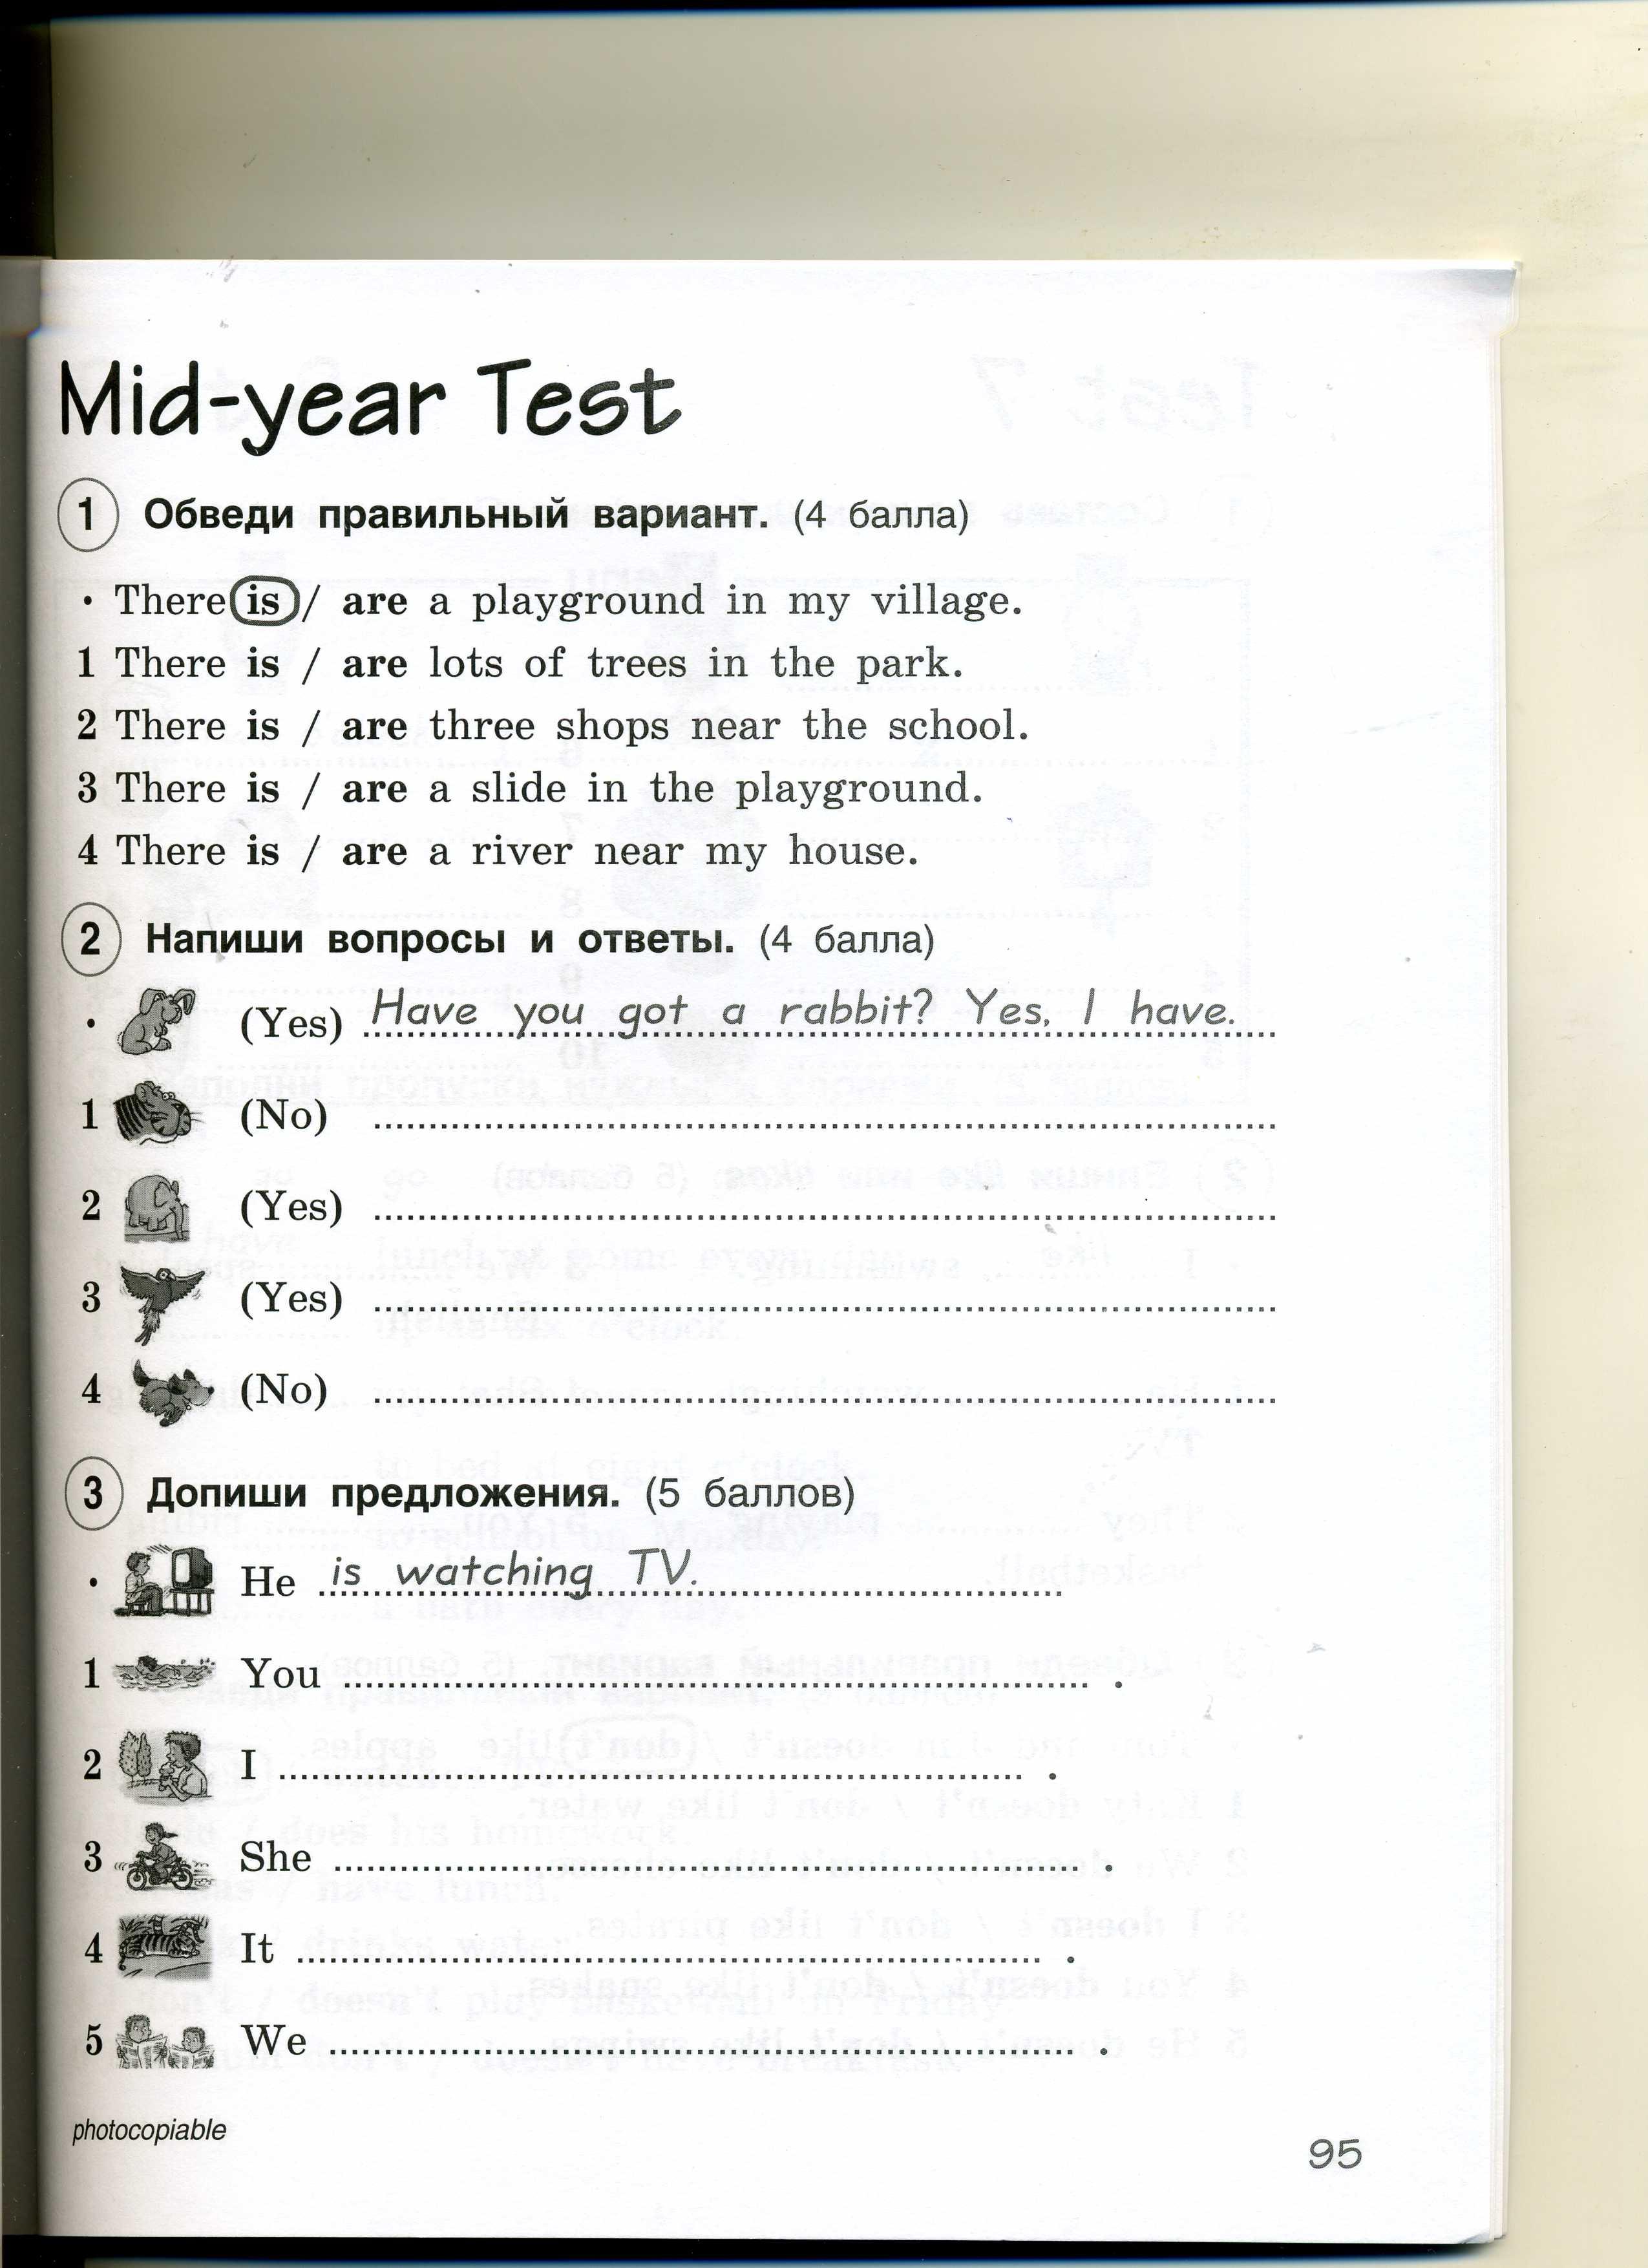 Mid-year Test
1 Обведи правильный вариант. (4 балла)
· There is / are a playground in my village.
1 There is / are lots of trees in the park.
2 There is / are three shops near the school.
3 There is / are a slide in the playground.
4 There is / are a river near my house.
2 Напиши вопросы и ответы. (4 балла)
· (Yes) Have you got a rabbit? Yes, I have.
1 (No) ........................................
2 (Yes) ........................................
3 (Yes) ........................................
4 (No) ........................................
3 Допиши предложения. (5 баллов)
· He is watching TV.
1 You ........................................ .
2 I ........................................ .
3 She ........................................ .
4 It ........................................ .
5 We ........................................ .
photocopiable
95